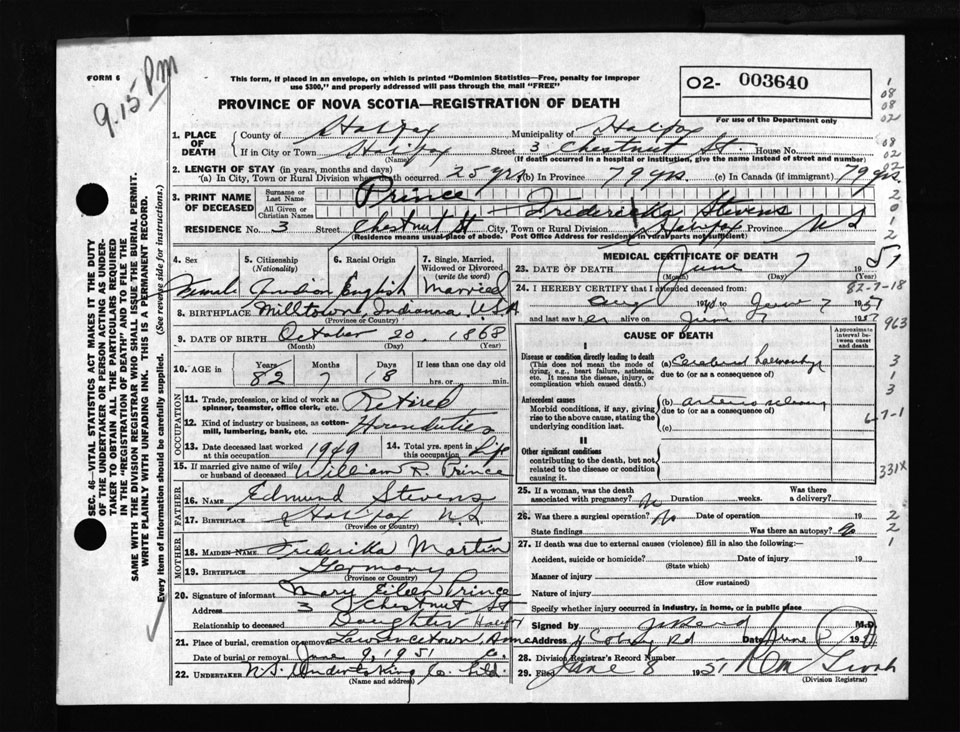 FORM 6
9.15 PM
This form, if placed in an envelope, on which is printed "Dominion Statistics—Free, penalty for improper
use $300," and properly addressed will pass through the mail "FREE"
O2- 003640
For use of the Department only
PROVINCE OF NOVA SCOTIA—REGISTRATION OF DEATH
1. PLACE OF DEATH County of Halifax Municipality of Halifax
If in City or Town Halifax Street 3 Chestnut St. House No.
(Name) (If death occurred in a hospital or institution, give the name instead of street and number)
2. LENGTH OF STAY (in years, months and days)
(a) In City, Town or Rural Division where death occurred 25 yrs (b) In Province 79 yrs. (c) In Canada (if immigrant) 79 yrs.
3. PRINT NAME OF DECEASED Surname or Last Name Prince
All Given or Christian Names Fredericka Stevens
RESIDENCE No. 3 Street Chestnut St City, Town or Rural Division Halifax Province N S
(Residence means usual place of abode. Post Office Address for resident in rural parts not sufficient)
4. Sex Female
5. Citizenship (Nationality)
6. Racial Origin English
7. Single, Married, Widowed or Divorced (write the word) Married
8. BIRTHPLACE Milltown, Indianna, USA
(Province or Country)
9. DATE OF BIRTH October 20. 1868
(Month) (Day) (Year)
10. AGE in Years 82 Months 7 Days 18 If less than one day old
hrs. or min.
OCCUPATION
11. Trade, profession, or kind of work as
spinner, teamster, office clerk, etc. Retired
12. Kind of industry or business, as cotton-
mill, lumbering, bank, etc. Houseduties
13. Date deceased last worked at this occupation 1949
14. Total yrs. spent in this occupation Life
15. If married give name of wife
or husband of deceased William R. Prince
FATHER
16. NAME Edmund Stevens
17. BIRTHPLACE Halifax N.S.
(Province or Country)
MOTHER
18. MAIDEN NAME Frederika Martin
19. BIRTHPLACE Germany
(Province or Country)
20. Signature of informant Mary Eileen Prince
Address 3 Chestnut St
Relationship to deceased Daughter
21. Place of burial, cremation or removal Lawrencetown,
Date of burial or removal June 9, 1951
22. UNDERTAKER N.S. Undertaking Co. Ltd.
(Name and address)
MEDICAL CERTIFICATE OF DEATH
23. DATE OF DEATH June 7 1951
(Month) (Day) (Year)
24. I HEREBY CERTIFY that I attended deceased from:
82-7-18
Aug to June 7 1951
and last saw her alive on June 7 1951
963
CAUSE OF DEATH
Approximate interval between onset and death
I
Disease or condition directly leading to death
(This does not mean the mode of
dying, e.g., heart failure, asthenia,
etc. It means the disease, injury, or
complication which caused death.)
(a) Cerebral
due to (or as a consequence of)
Antecedent causes
Morbid conditions, if any, giving
rise to the above cause, stating the
underlying condition last.
(b)
due to (or as a consequence of)
(c)
6-7-1
II
Other significant conditions
contributing to the death, but not
related to the disease or condition
causing it.
331X
25. If a woman, was the death
associated with pregnancy? No Duration weeks. Was there
a delivery?
26. Was there a surgical operation? No Date of operation 19
State findings Was there an autopsy? No
27. If death was due to external causes (violence) fill in also the following:—
Accident, suicide or homicide? Date of injury 19
(State which)
Manner of injury
(How sustained)
Nature of injury
Specify whether injury occurred in industry, in home, or in public place
Signed by M.D.
Address Rd Date June
28. Division Registrar's Record Number
29. Filed June 8 1951
(Division Registrar)
SEC. 46—VITAL STATISTICS ACT MAKES IT THE DUTY
OF THE UNDERTAKER OR PERSON ACTING AS UNDER-
TAKER TO OBTAIN ALL THE PARTICULARS REQUIRED
IN THE "REGISTRATION OF DEATH" AND TO FILE THE
SAME WITH THE DIVISION REGISTRAR WHO SHALL ISSUE THE BURIAL PERMIT.
WRITE PLAINLY WITH UNFADING INK. THIS IS A PERMANENT RECORD.
Every item of information should be carefully supplied. (See reverse side for instructions.)